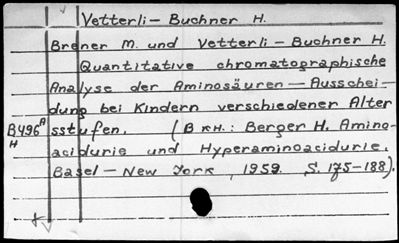 Vetterli - Buchner H.
Brener M. und Vetterli - Buchner H.
Quantitative chromatographische
Analyse der Aminosäuren - Ausschei-
dung bei Kindern verschiedener Alter
sstufen. (В кн.: Berger H. Amino-
B496A
H
acidurie und Hyperaminoacidurie.
Basel - New York, 1959. S. 175-188).